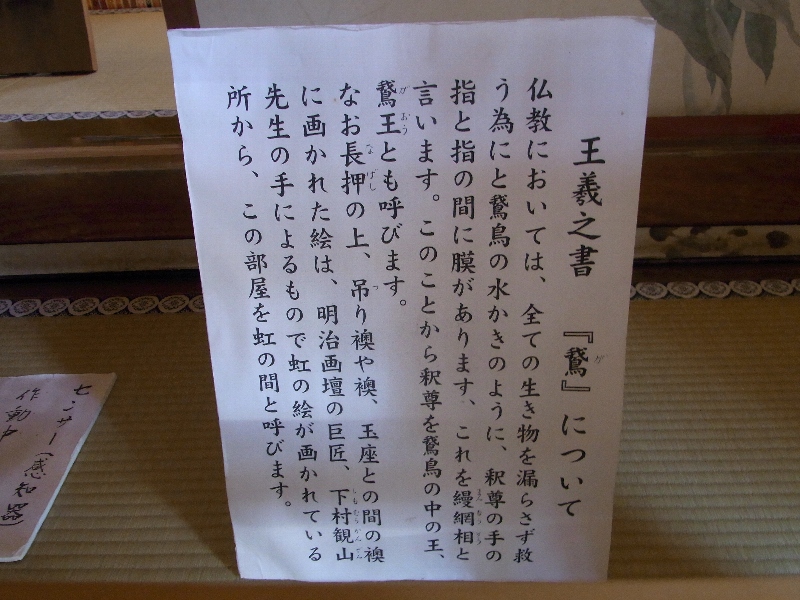 王羲之書 『鵞』について
仏教においては、全ての生き物を漏らさず救
う為にと鵞鳥の水かきのように、釈尊の手の
指と指の間に膜があります、これを縵網相と
言います。このことから釈尊を鵞鳥の中の王、
鵞王とも呼びます。
なお長押の上、吊り襖や襖、玉座との間の襖
に画かれた絵は、明治画壇の巨匠、下村観山
先生の手によるもので虹の絵が画かれている
所から、この部屋を虹の間と呼びます。
センサー(感知器)
作動中